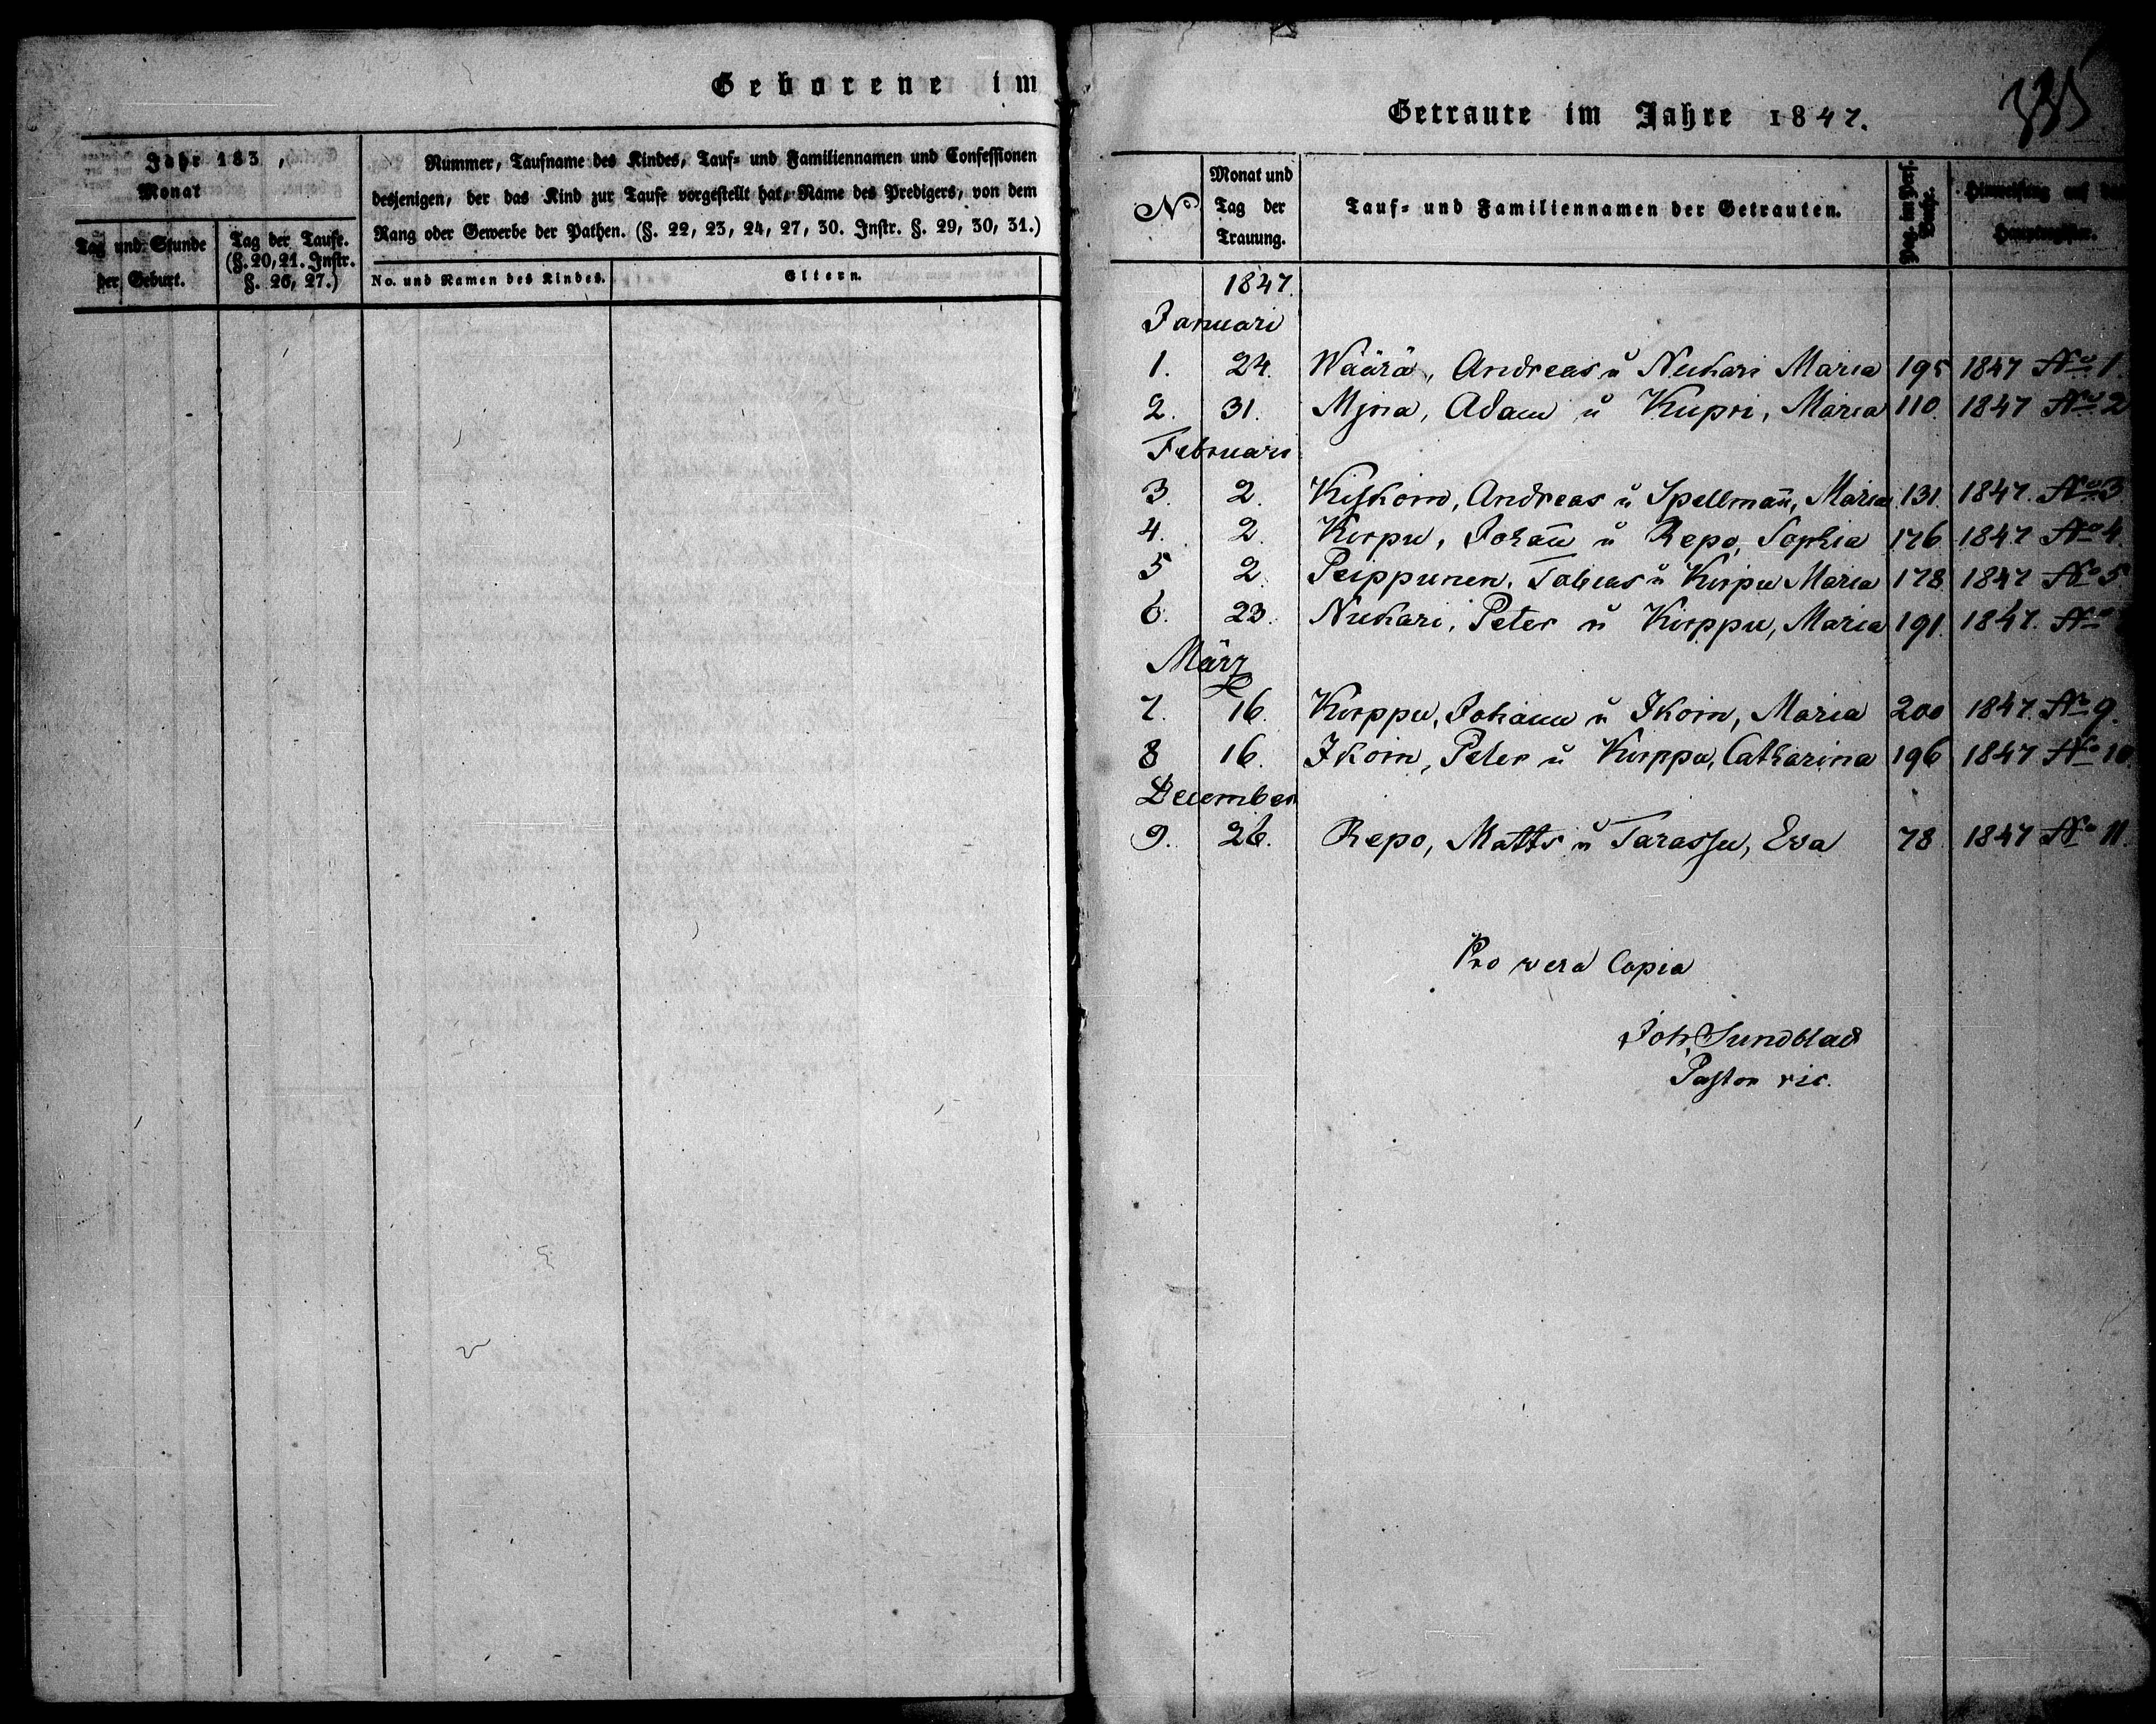 Geborene im
Jahr 183 ,
Monat
Tag und Stunde
der Geburt.
Tag der Taufe.
(§. 20, 21. Instr.
§. 26, 27.)
Nummer, Taufname des Kindes, Tauf- und Familiennamen und Confessionen
desjenigen, der das Kind zur Taufe vorgestellt hat, Name des Predigers, von dem
Rang oder Gewerbe der Pathen. (§. 22, 23, 24, 27, 30. Instr. §. 29, 30, 31.)
No. und Namen des Kindes.
Eltern.
Getraute im Jahre 1847.
No
Monat und
Tag der
Trauung.
Tauf- und Familiennamen der Getrauten.
Pag. im Pers.
Hinweisung auf das
Hauptregister.
1847.
Januari
1. 24. Wäärä, Andreas u Nukari Maria 195 1847 No 1.
2. 31. Mjna, Adam u Kupri, Maria 110. 1847 No 2
Februari
3. 2. Kiskoin, Andreas u Spellman̄, Maria 131. 1847. No 3
4. 2. Korpu, Johan̄ u Repo, Sophia 176 1847 No 4.
5 2. Peippunen, Tobias u Kirpu Maria 178 1847 No 5.
6. 23. Nukari, Peter u Kirppu, Maria 191. 1847. No
März
7. 16. Kirppu, Johann u Ikoin, Maria 200 1847. No 9.
8 16. Ikoin, Peter u Kirppu, Catharina 196 1847 No 10.
December
9. 26. Repo, Matts u Tarassu, Eva 78 1847 No 11.
Pro vera Copia
Joh. Sundblad
Pastor vic.